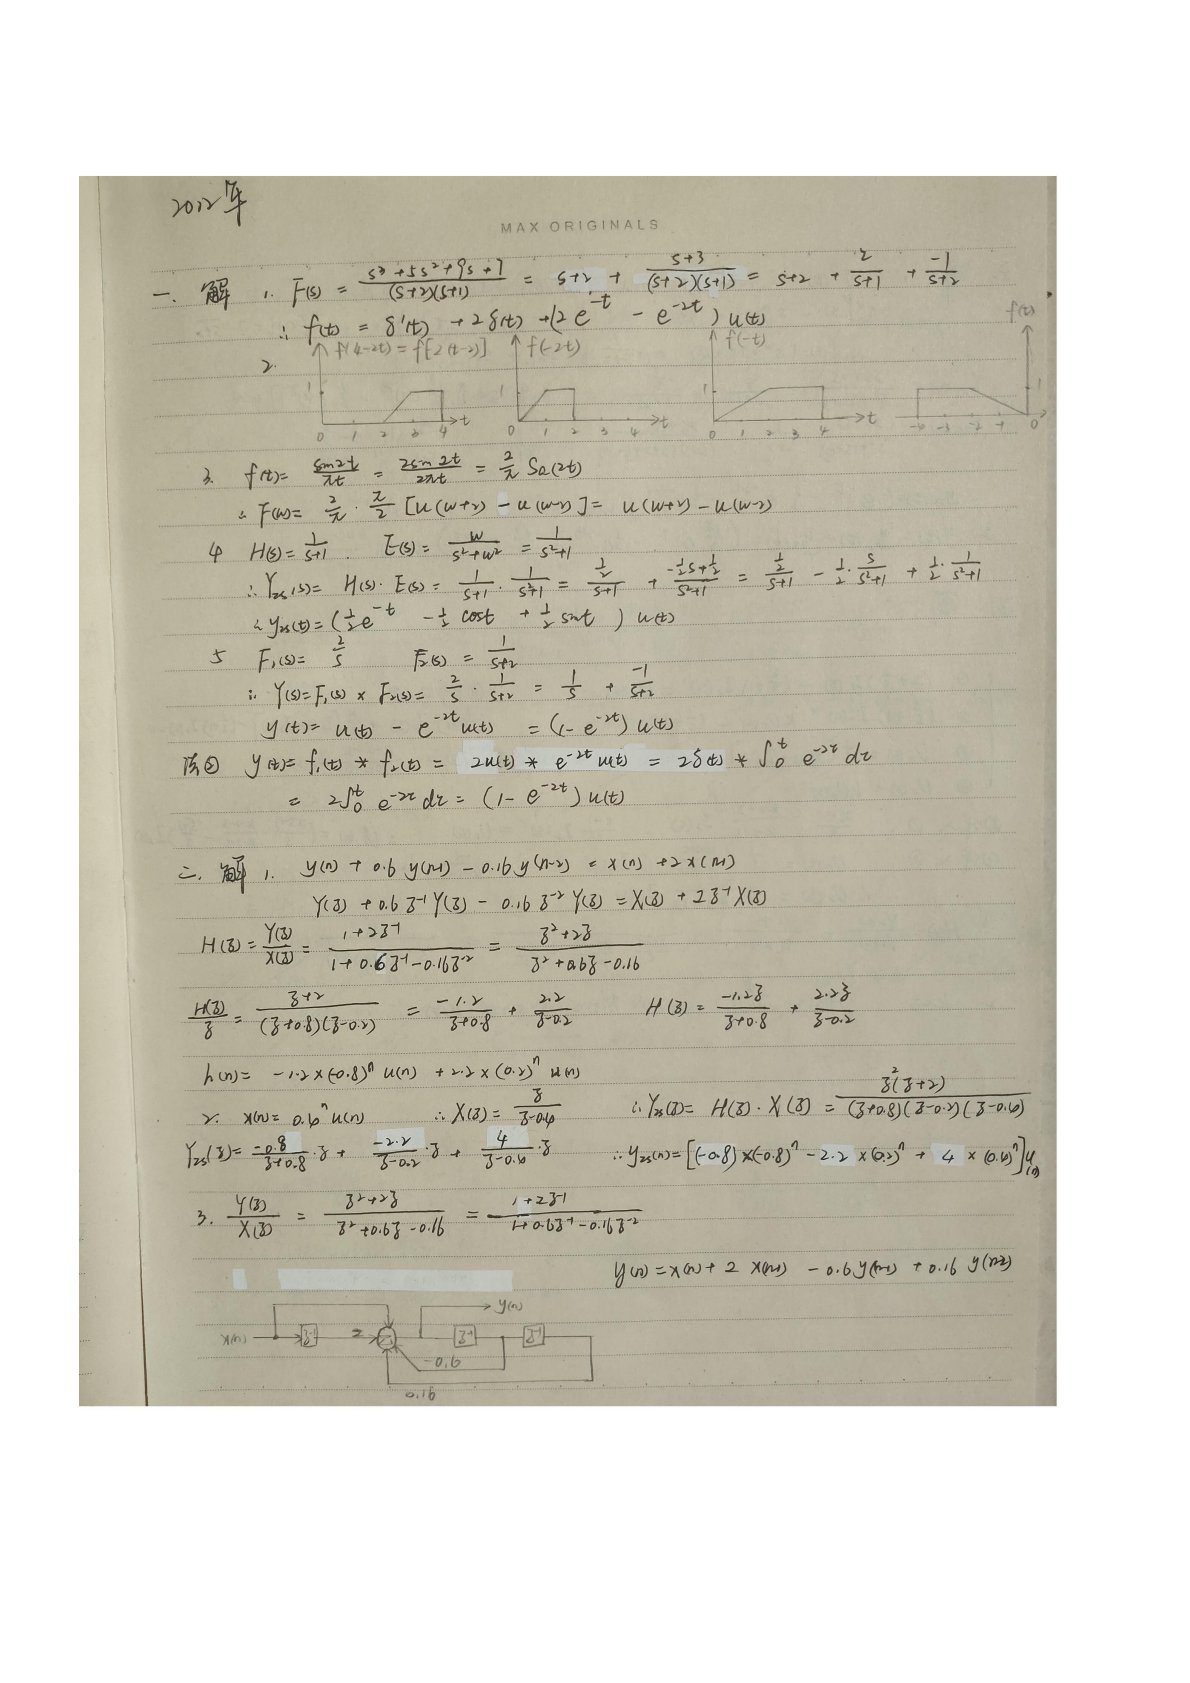 2012年
MAX ORIGINALS
一. 解 1. F(s) = (s³+5s²+9s+7)/((s+2)(s+1)) = s+2 + (s+3)/((s+2)(s+1)) = s+2 + 2/(s+1) + -1/(s+2)
∴ f(t) = δ'(t) + 2δ(t) + (2e^-t - e^-2t) u(t)
2. f(4-2t) = f[2(t-2)] f(-2t) f(-t) f(t)
1 1 1 1
0 1 2 3 4 t 0 1 2 3 4 t 0 1 2 3 4 t -4 -3 -2 -1 0
3. f(t) = sin2t/πt = 2sin2t/2πt = 2/π Sa(2t)
∴ F(w) = 2/π · π/2 [u(w+2) - u(w-2)] = u(w+2) - u(w-2)
4 H(s) = 1/(s+1). E(s) = w/(s²+w²) = 1/(s²+1)
∴ Yzs(s) = H(s)·E(s) = 1/(s+1) · 1/(s²+1) = ½/(s+1) + (-½s+½)/(s²+1) = ½/(s+1) - ½·s/(s²+1) + ½·1/(s²+1)
∴ yzs(t) = (½e^-t - ½cost + ½sint) u(t)
5 F₁(s) = 2/s F₂(s) = 1/(s+2)
∴ Y(s) = F₁(s) × F₂(s) = 2/s · 1/(s+2) = 1/s + -1/(s+2)
y(t) = u(t) - e^-2t u(t) = (1-e^-2t) u(t)
法② y(t) = f₁(t) * f₂(t) = 2u(t) * e^-2t u(t) = 2δ(t) * ∫₀^t e^-2τ dτ
= 2∫₀^t e^-2τ dτ = (1-e^-2t) u(t)
二. 解 1. y(n) + 0.6 y(n-1) - 0.16 y(n-2) = x(n) + 2x(n-1)
Y(z) + 0.6 z^-1 Y(z) - 0.16 z^-2 Y(z) = X(z) + 2z^-1 X(z)
H(z) = Y(z)/X(z) = (1+2z^-1)/(1+0.6z^-1-0.16z^-2) = (z²+2z)/(z²+0.6z-0.16)
H(z)/z = (z+2)/((z+0.8)(z-0.2)) = -1.2/(z+0.8) + 2.2/(z-0.2) H(z) = -1.2z/(z+0.8) + 2.2z/(z-0.2)
h(n) = -1.2×(-0.8)^n u(n) + 2.2×(0.2)^n u(n)
2. x(n) = 0.6^n u(n) ∴ X(z) = z/(z-0.6) ∴ Yzs(z) = H(z)·X(z) = z²(z+2)/((z+0.8)(z-0.2)(z-0.6))
Yzs(z) = -0.8/(z+0.8)·z + -2.2/(z-0.2)·z + 4/(z-0.6)·z ∴ yzs(n) = [(-0.8)×(-0.8)^n - 2.2×(0.2)^n + 4×(0.6)^n]u(n)
3. Y(z)/X(z) = (z²+2z)/(z²+0.6z-0.16) = (1+2z^-1)/(1+0.6z^-1-0.16z^-2)
y(n) = x(n) + 2 x(n-1) - 0.6y(n-1) + 0.16 y(n-2)
y(n)
x(n) z^-1 2 Σ z^-1 z^-1
-0.6
0.16